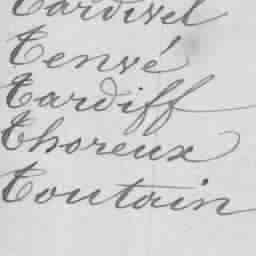 Tardivel
Tenvé
Tardiff
Thoreux
Toutain